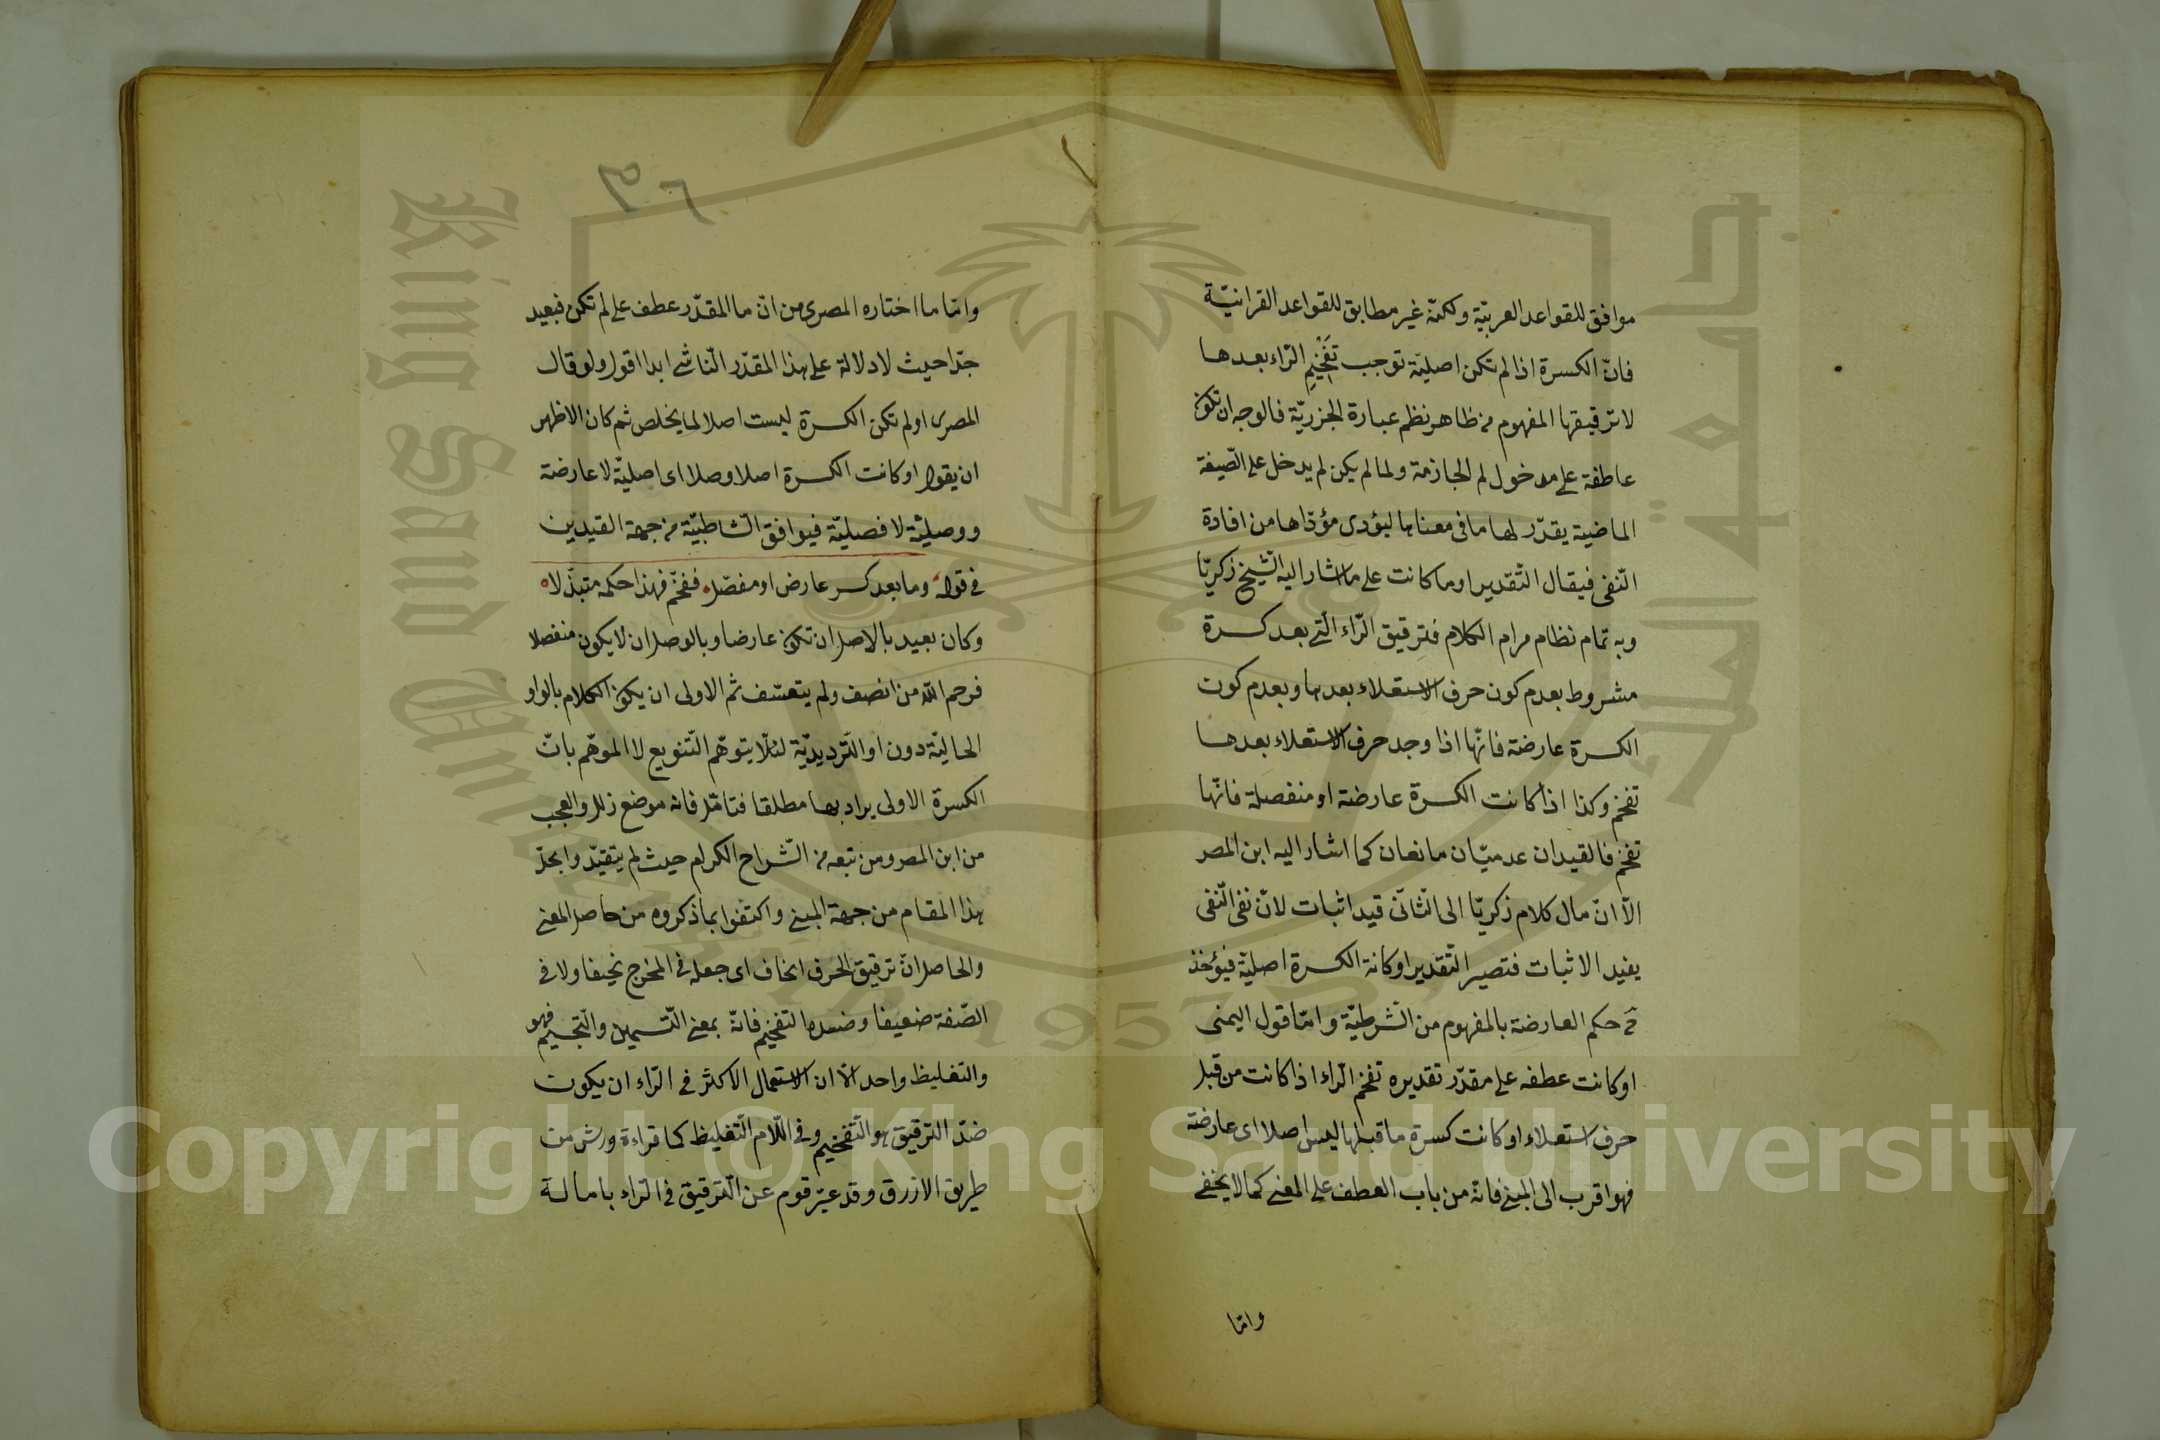 موافق للقواعد العربيّة ولكنّه غير مطابق للقواعد القرانيّة
فانّ الكسرة اذا لم تكن اصليّة توجب تَفْخيم الرّاء بعدها
لا ترقيقها المفهوم من ظاهر نظم عبارة الجزريّة فالوجه ان تكون
عاطفة على مدخول لم الجازمة ولما لم يكن لم يدخل على الصّيغة
الماضية يقدّر لها ما فى معناها ليؤدى مؤدّاها من افادة
النّفى فيقال التّقدير او ما كانت على ما اشار اليه الشّيخ زكريّا
وبه تمام نظام مرام الكلام فترقيق الرّاء الّتى بعد كسرة
مشروط بعدم كون حرف الاستعلاء بعدها وبعدم كون
الكسرة عارضة فانّها اذا وجد حرف الاستعلاء بعدها
تفخم وكذا اذا كانت الكسرة عارضة او منفصلة فانّها
تفخم فالقيدان عدميّان مانعان كما اشار اليه ابن المصر
الاّ انّ مال كلام زكريّا الى الثّانى قيد اثبات لانّ نفى النّفى
يفيد الاثبات فتصير التّقدير او كانة الكسرة اصليّة فيؤخذ
حكم العارضة بالمفهوم من الشّرطيّة وامّا قول اليمنى
او كانت عطفه على مقدّر تقديره تفخم الرّاء اذا كانت من قبل
حرف استعلاء او كانت كسرة ما قبلها ليس اصلا اى عارضة
فهو اقرب الى المبنى فانّه من باب العطف على المعنى كما لا يخفى
وامّا
٢٩
وامّا ما اختاره المصرى من انّ ما المقدّر عطف على لم تكن فبعيد
جدّا حيث لا دلالة على هذا المقدّر النّاشى ابدا اقول ولو قال
المصرى او لم تكن الكسرة ليست اصلا لما يخلص ثم كان الاظهر
ان يقول او كانت الكسرة اصلا وصلا اى اصليّة لا عارضة
ووصليّة لا فصليّة فيوافق الشّاطبيّة من جهة القيدين
فى قوله وما بعد كسر عارض او مفصّل ففخّم فهذا حكمه متبذّلا
وكان بعيد بالاصل ان تكون عارضا وبالوصل ان لا يكون منفصلا
فرحم اللّه من انصف ولم يتعسّف ثم الاولى ان يكون الكلام بالواو
الحاليّة دون او التّرديديّة لئلّا يتوهّم التّنويع لا الموهّم بانّ
الكسرة الاولى يراد بها مطلقا فتامّل فانه موضع زلل والعجب
من ابن المصر ومن تبعه من الشّراح الكرام حيث لم يتقيّدوا بحلّ
هذا المقام من جهة المبنى واكتفوا بما ذكروه من حاصل المعنى
والحاصل انّ ترقيق الحرف انحاف اى جعله فى المخرج نحيفا ولا فى
الصّفة ضعيفا وضدها التفخيم فانّه بمعنى التّسمين والتّجسيم فهو
والتغليظ واحد الاّ ان الاستعمال الاكثر فى الرّاء ان يكون
ضدّ الترقيق هو التّفخيم وفى اللّام التّغليظ كما قراءة ورش من
طريق الازرق وقد عبّر قوم عن التّرقيق فى الرّاء بامالة
King Saud University
جامعة الملك سعود
1957
Copyright © King Saud University